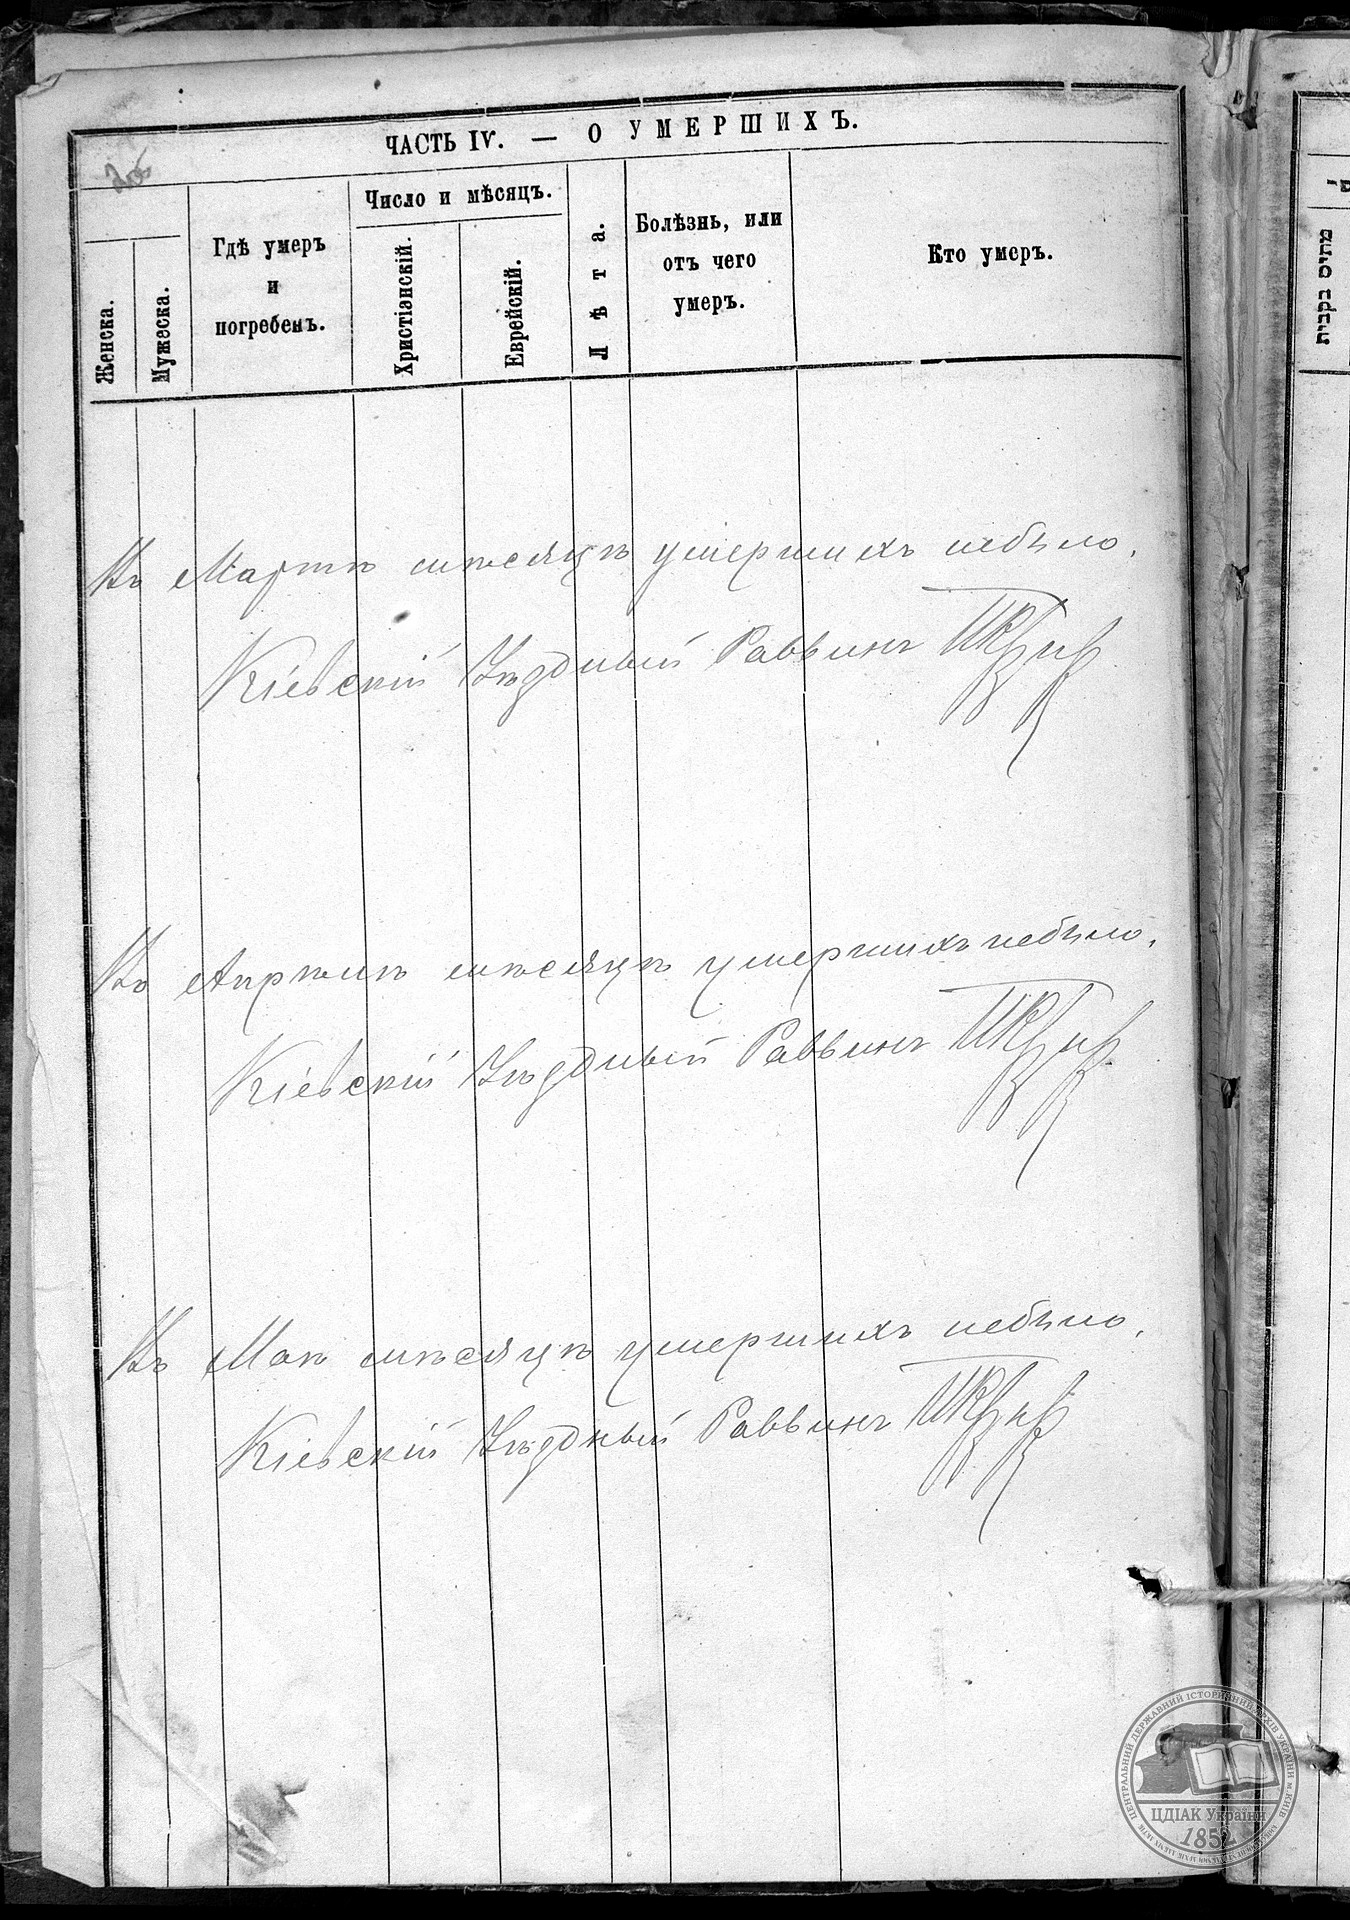 ЧАСТЬ IV. — О УМЕРШИХЪ.
Женска.
Мужеска.
Гдѣ умеръ
и
погребенъ.
Число и мѣсяцъ.
Христіанскій.
Еврейскій.
Лѣта.
Болѣзнь, или
отъ чего
умеръ.
Кто умеръ.
Въ Мартѣ мѣсяцѣ умершихъ небыло.
Кіевскій Уѣздный Раввинъ
Въ Апрѣлѣ мѣсяцѣ умершихъ небыло.
Кіевскій Уѣздный Раввинъ
Въ Маѣ мѣсяцѣ умершихъ небыло.
Кіевскій Уѣздный Раввинъ
ЦЕНТРАЛЬНИЙ ДЕРЖАВНИЙ ІСТОРИЧНИЙ АРХІВ УКРАЇНИ м. КИЇВ
ЦДІАК України
1852